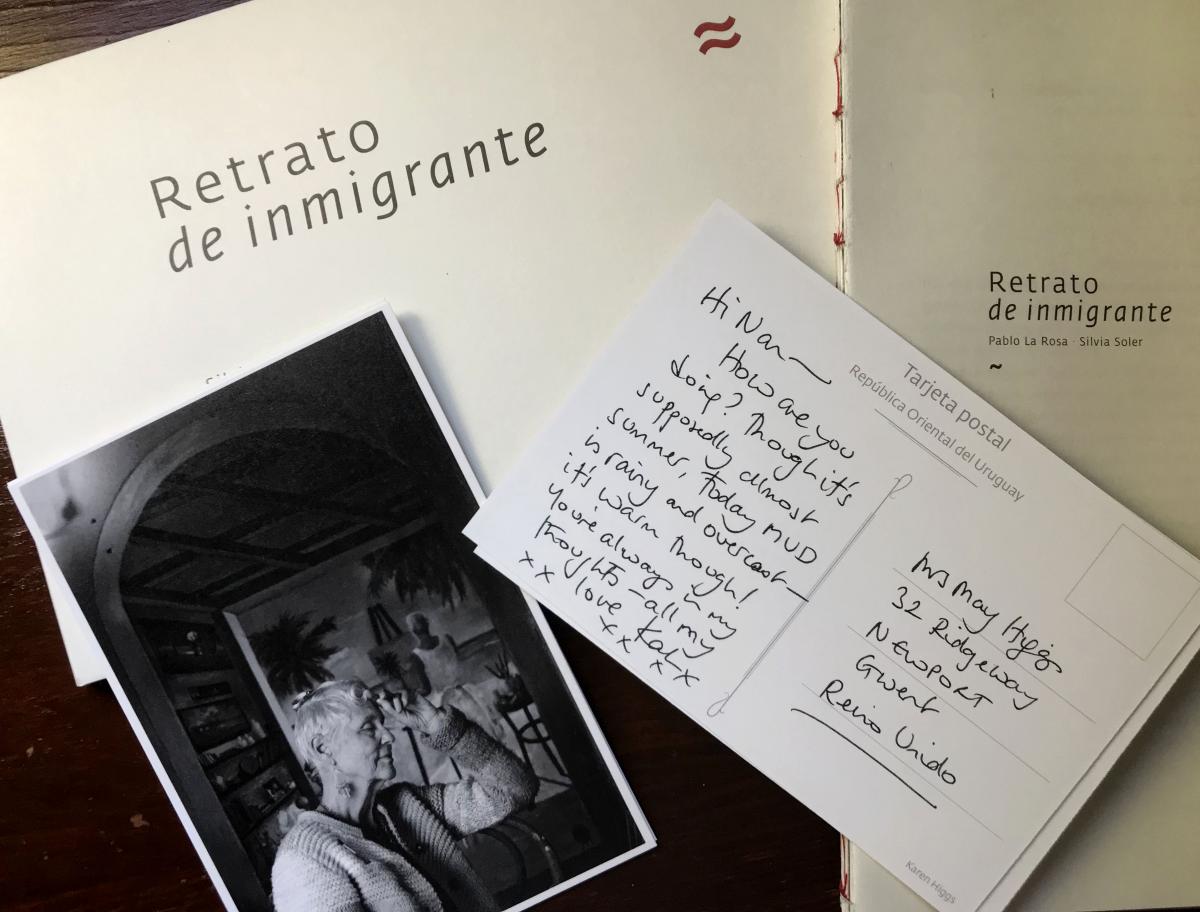 Retrato
de inmigrante
Retrato
de inmigrante
Pablo La Rosa · Silvia Soler
~
Hi Nan~
How are you
doing? Though it's
supposedly almost
summer, today MVD
is rainy and overcast –
it's warm though!
You're always in my
thoughts – all my
love Kat x
x x x x x x
Tarjeta postal
República Oriental del Uruguay
Mrs May Higgs
32 Ridgeway
NEWPORT
Gwent
Reino Unido
Karen Higgs